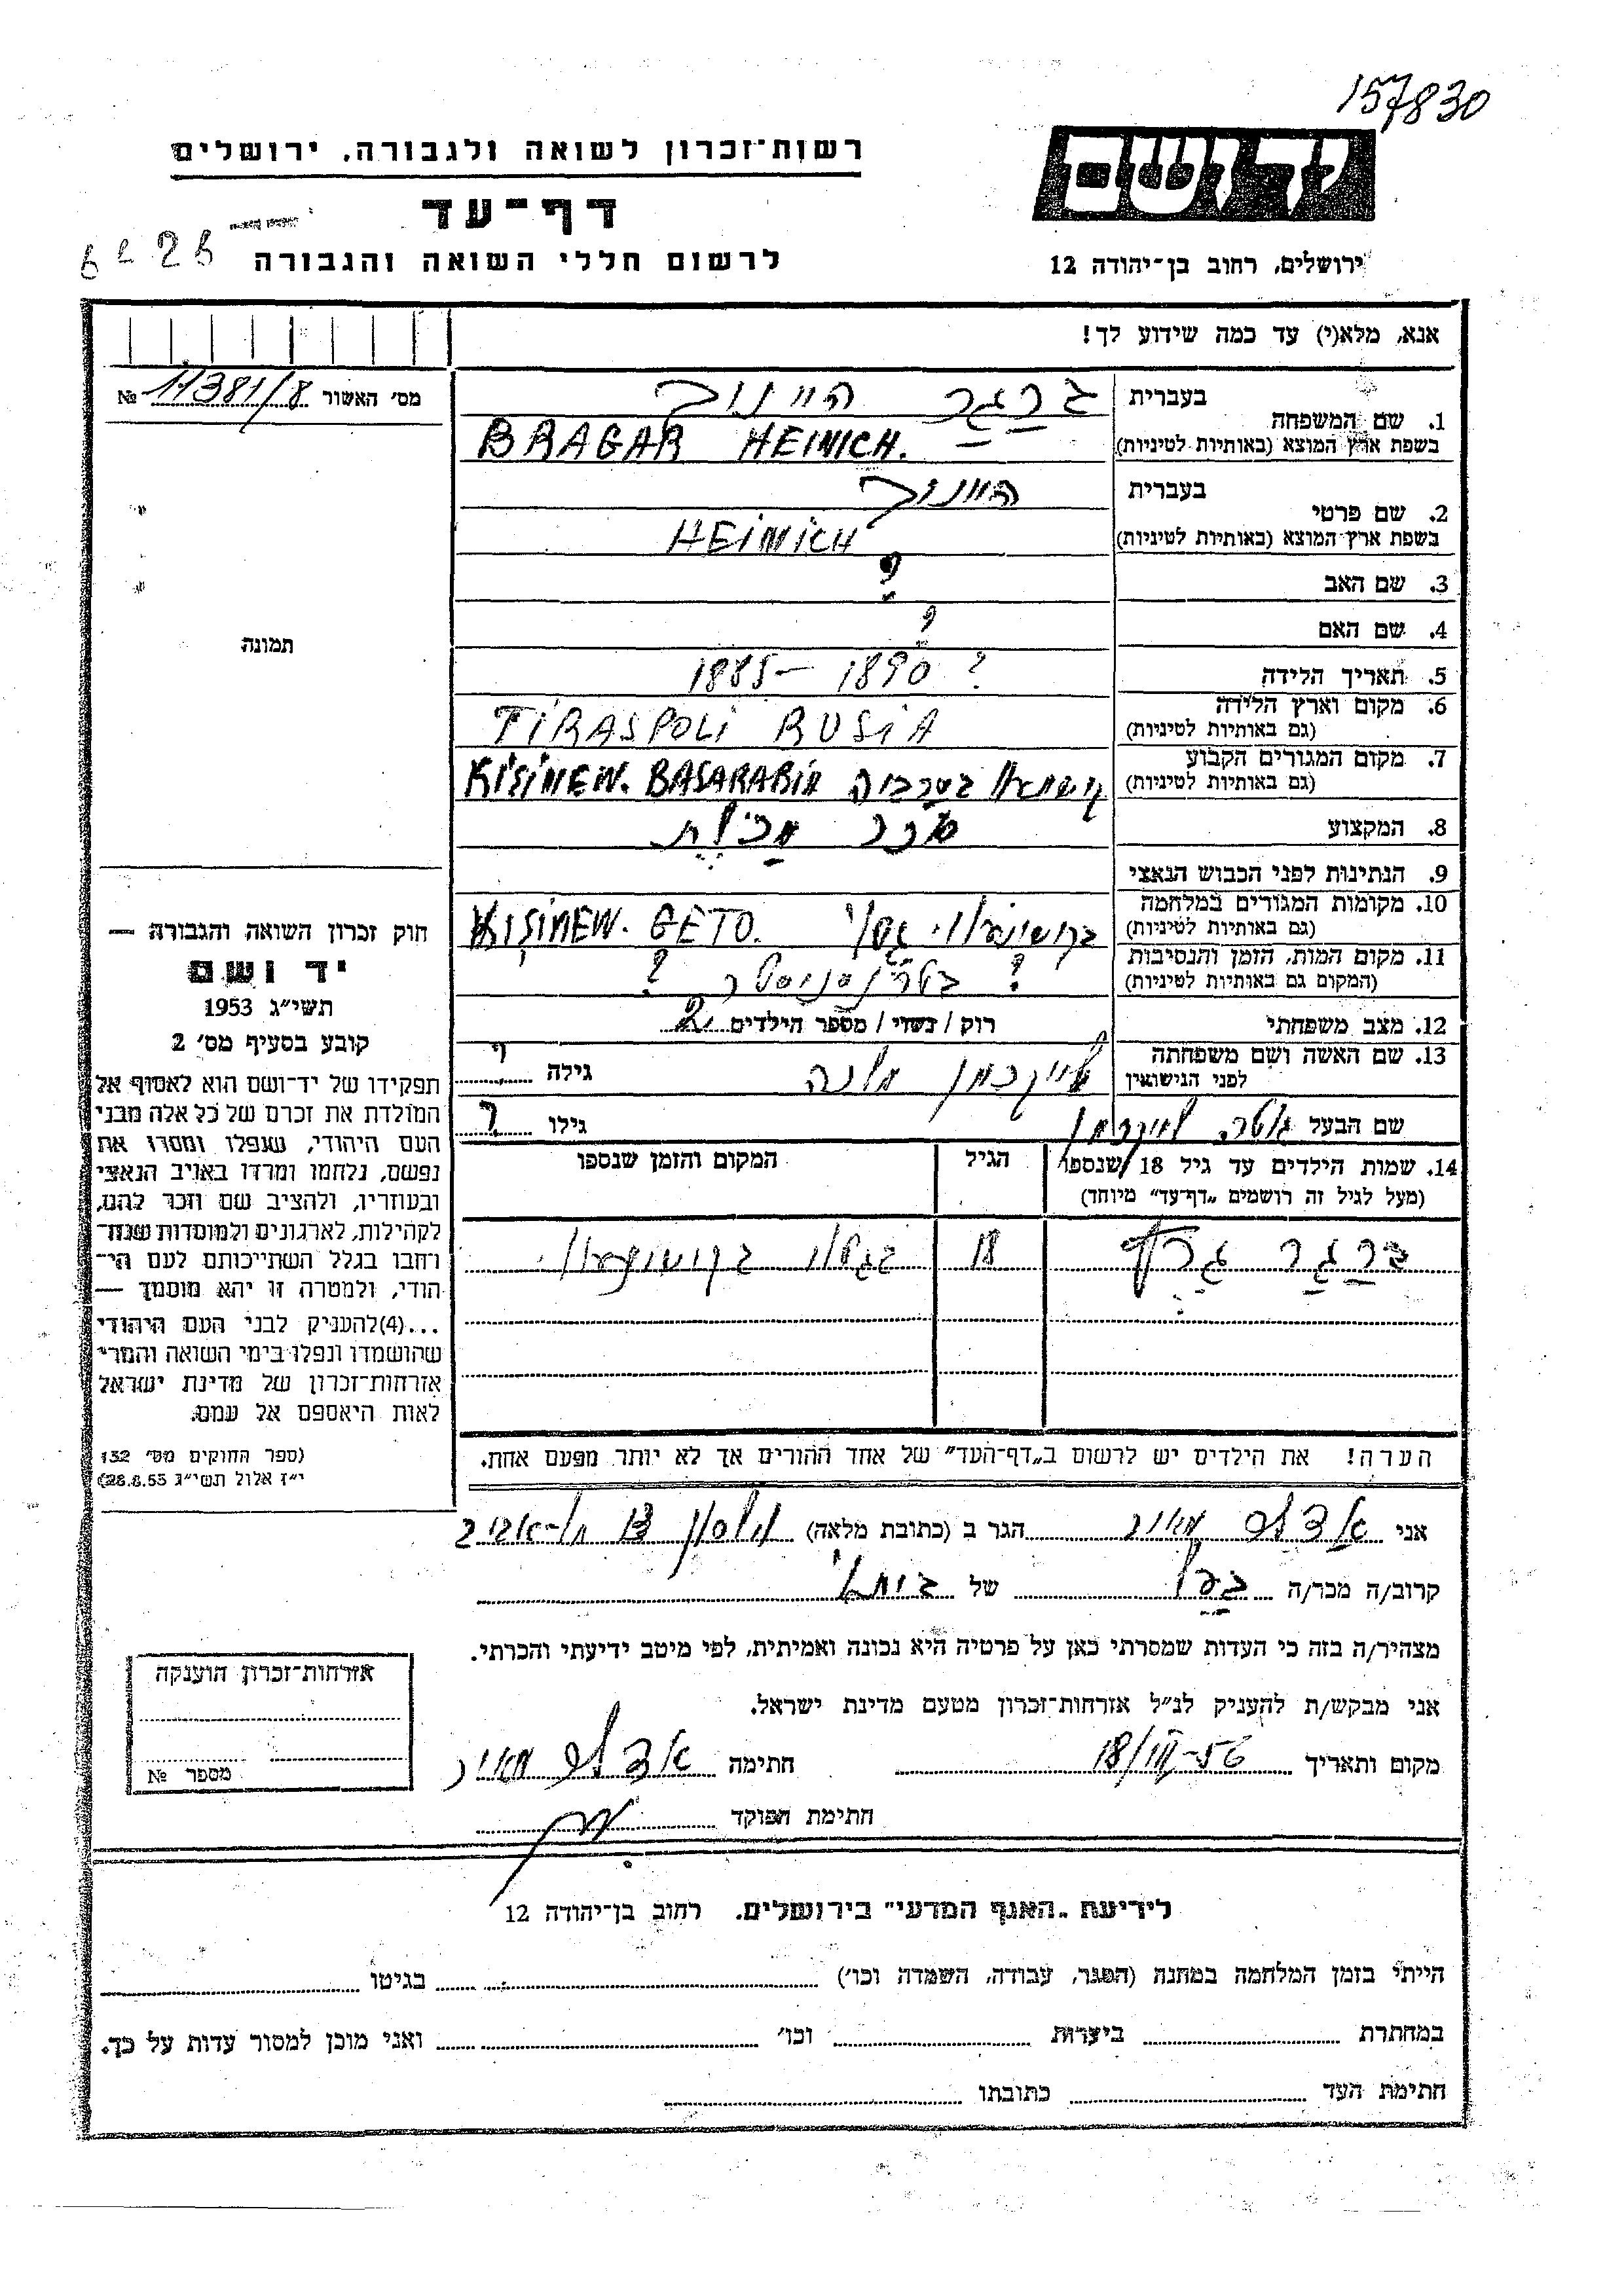 157830
יד ושם
רשות־זכרון לשואה ולגבורה, ירושלים
דף־עד
לרשום חללי השואה והגבורה
ירושלים, רחוב בן־יהודה 12
אנא, מלא(י) עד כמה שידוע לך!
מס׳ האשור 11381/8 №
1. שם המשפחה
בעברית ברגר היינוך
בשפת ארץ המוצא (באותיות לטיניות) BRAGAR HEINICH.
2. שם פרטי
בעברית היינוך
בשפת ארץ המוצא (באותיות לטיניות) HEINICH
3. שם האב ?
4. שם האם ?
5. תאריך הלידה 1885 – 1890 ?
6. מקום וארץ הלידה
(גם באותיות לטיניות) TIRASPOLI RUSIA
7. מקום המגורים הקבוע
(גם באותיות לטיניות) KISINEW. BASARABIA
8. המקצוע
9. הנתינות לפני הכבוש הנאצי
10. מקומות המגורים במלחמה
(גם באותיות לטיניות) KISINEW. GETO.
11. מקום המות, הזמן והנסיבות
(המקום גם באותיות לטיניות) ? בטרנסניסטר ?
12. מצב משפחתי רוק / נשוי / מספר הילדים 2
13. שם האשה ושם משפחתה
לפני הנישואין גילה ?
שם הבעל גילו ?
14. שמות הילדים עד גיל 18 שנספו הגיל המקום והזמן שנספו
(מעל לגיל זה רושמים „דף־עד״ מיוחד)
ברגר 18
הערה! את הילדים יש לרשום ב„דף־העד״ של אחד ההורים אך לא יותר מפעם אחת.
תמונה
חוק זכרון השואה והגבורה —
יד ושם
תשי״ג 1953
קובע בסעיף מס׳ 2
תפקידו של יד־ושם הוא לאסוף אל
המולדת את זכרם של כל אלה מבני
העם היהודי, שנפלו ומסרו את
נפשם, נלחמו ומרדו באויב הנאצי
ובעוזריו, ולהציב שם וזכר להם,
לקהילות, לארגונים ולמוסדות שנח־
רחבו בגלל השתייכותם לעם הי־
הודי, ולמטרה זו יהא מוסמך —
...(4)להעניק לבני העם היהודי
שהושמדו ונפלו בימי השואה והמרי
אזרחות־זכרון של מדינת ישראל
לאות היאספם אל עמם.
(ספר החוקים מס׳ 132
י״ז אלול תשי״ג 28.8.53)
אני הגר ב (כתובת מלאה) תל־אביב
קרוב/ה מכר/ה של
מצהיר/ה בזה כי העדות שמסרתי כאן על פרטיה היא נכונה ואמיתית, לפי מיטב ידיעתי והכרתי.
אני מבקש/ת להעניק לנ״ל אזרחות־זכרון מטעם מדינת ישראל.
מקום ותאריך חתימה
חתימת הפוקד
אזרחות־זכרון הוענקה
מספר №
לידיעת „האגף המדעי״ בירושלים, רחוב בן־יהודה 12
הייתי בזמן המלחמה במחנה (הסגר, עבודה, השמדה וכו׳) בגיטו
במחתרת ביערות וכו׳ ואני מוכן למסור עדות על כך.
חתימת העד כתובתו